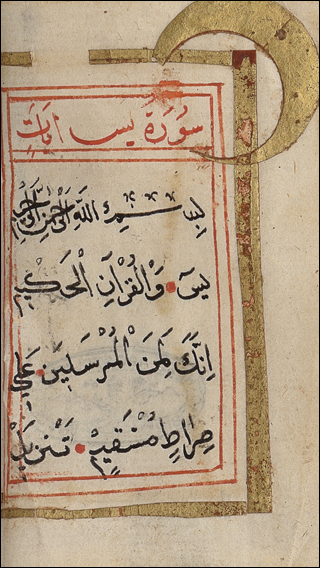 سُورَة يس ايَات
بِسْمِ اللهِ الرَّحْمٰنِ الرَّحِيْمِ
يسٓ • وَالْقُرْاٰنِ الْحَكِيْمِ
اِنَّكَ لَمِنَ الْمُرْسَلِيْنَ • عَلٰي
صِرَاطٍ مُسْتَقِيْمٍ • تَنْزِيْلَ